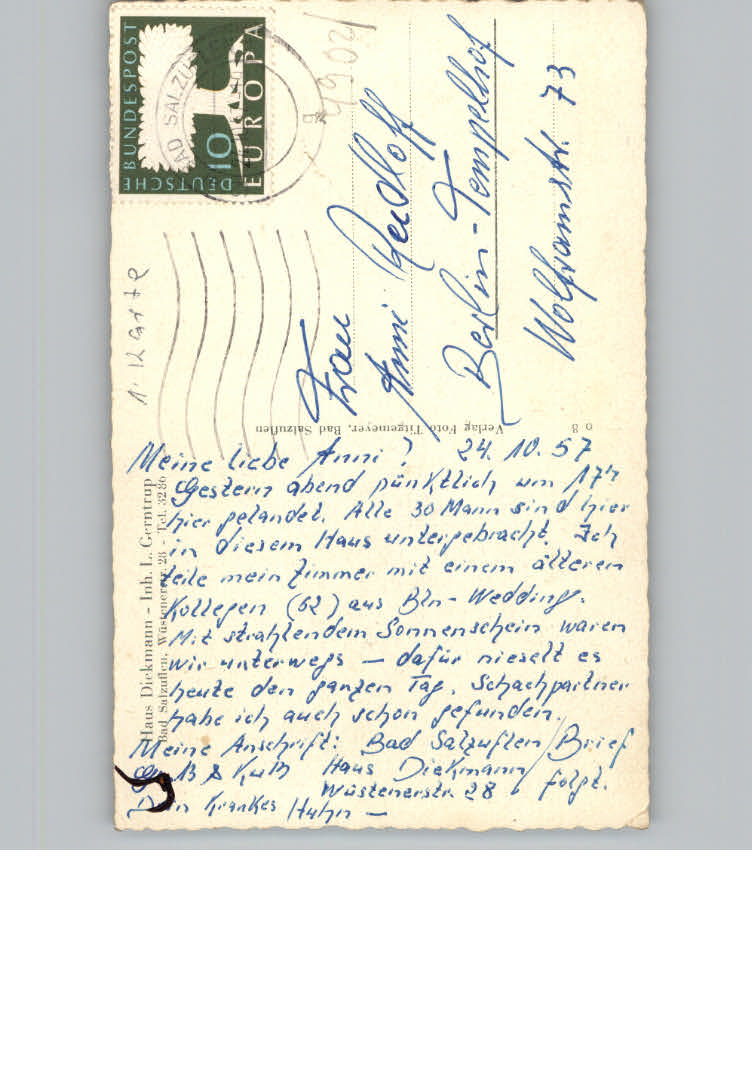 DEUTSCHE BUNDESPOST
10
EUROPA
BAD SALZUFLEN
4902
1. Karte
Frau
Anni Radloff
Berlin-Tempelhof
Wolframstr. 73
Verlag Foto Tilgemeyer, Bad Salzuflen
o 8
Haus Diekmann - Inh. L. Gerntrup
Bad Salzuflen, Wüstenerstr. 28 - Tel. 3286
24. 10. 57
Meine liebe Anni!
Gestern abend pünktlich um 17h
hier gelandet. Alle 30 Mann sind hier
in diesem Haus untergebracht. Ich
teile mein Zimmer mit einem älteren
Kollegen (62) aus Bln-Wedding.
Mit strahlendem Sonnenschein waren
wir unterwegs – dafür nieselt es
heute den ganzen Tag. Schachpartner
habe ich auch schon gefunden.
Meine Anschrift: Bad Salzuflen / Brief
Haus Diekmann folgt.
Wüstenerstr. 28
Gr. B & KuB
Dein krankes Huhn –